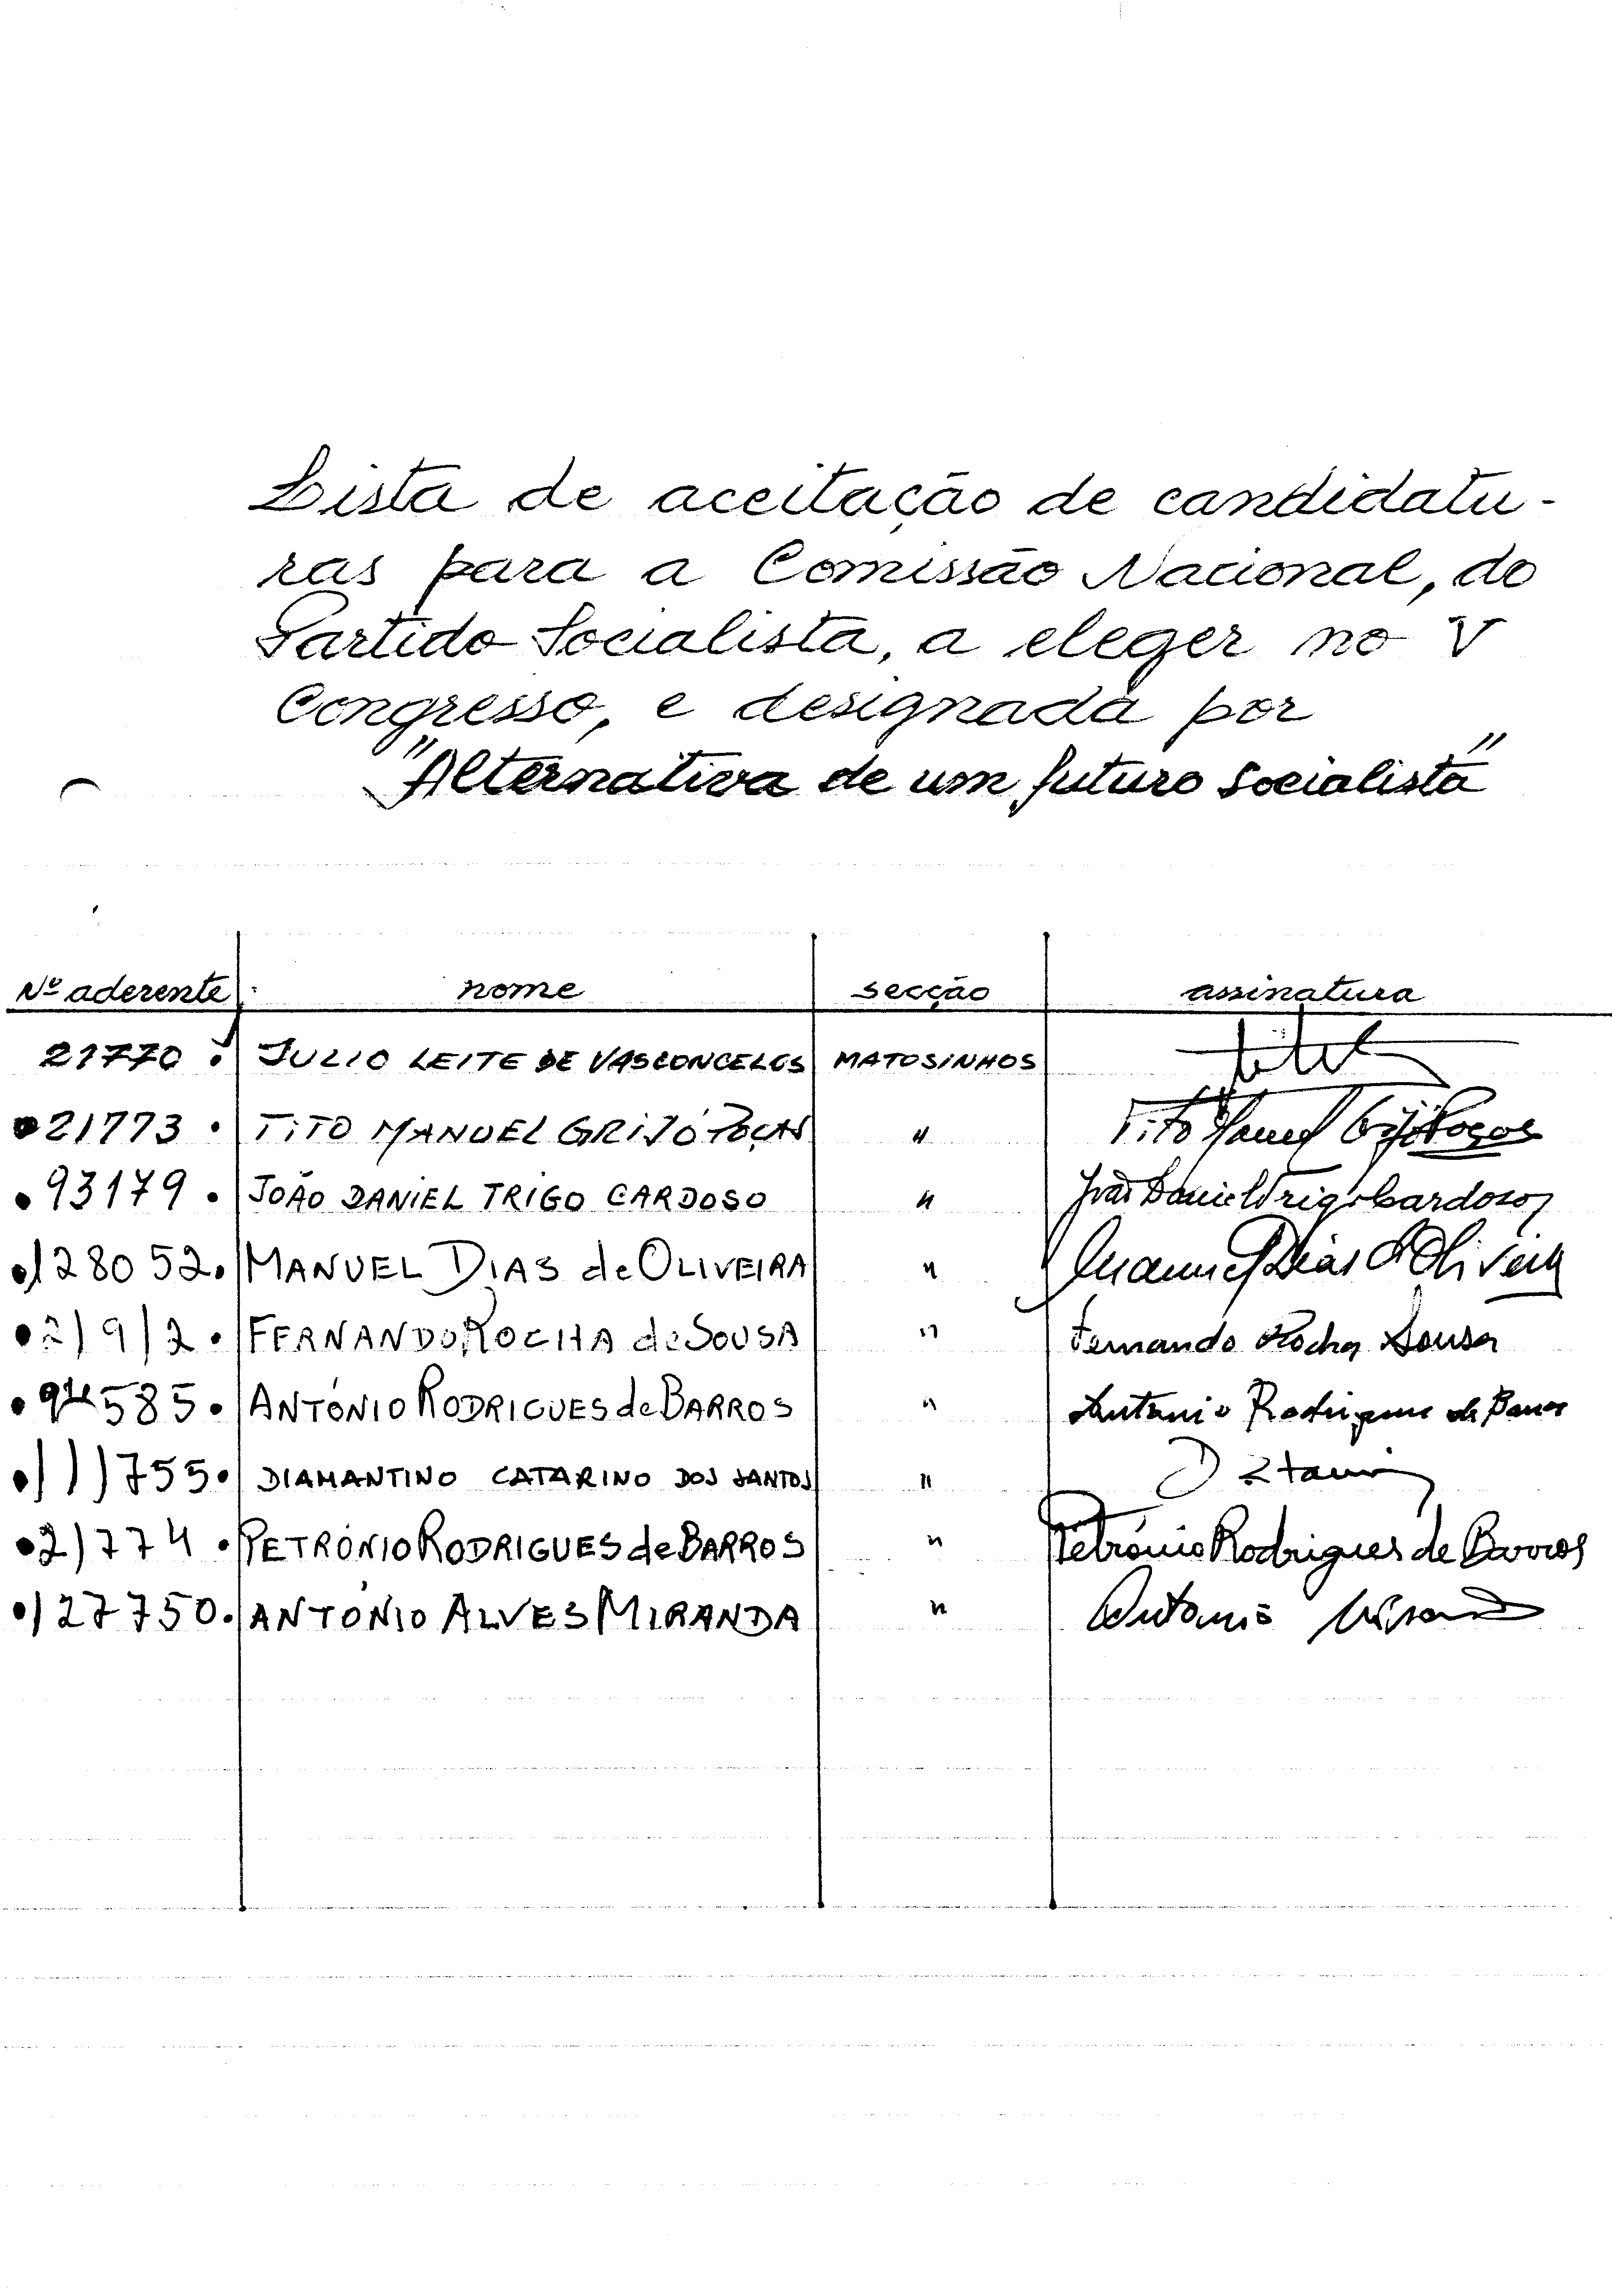 Lista de aceitação de candidatu-
ras para a Comissão Nacional, do
Partido Socialista, a eleger no V
Congresso, e designada por
"Alternativa de um futuro socialista"
Nº aderente nome secção assinatura
21770 JULIO LEITE DE VASCONCELOS MATOSINHOS
21773 TITO MANUEL GRIJÓ POÇAS " Tito Manuel Grijó Poças
93179 JOÃO DANIEL TRIGO CARDOSO " João Daniel Trigo Cardoso
128052 MANUEL DIAS de OLIVEIRA " Manuel Dias d'Oliveira
21912 FERNANDO ROCHA de SOUSA " Fernando Rocha Sousa
94585 ANTÓNIO RODRIGUES de BARROS " Antonio Rodrigues de Barros
111755 DIAMANTINO CATARINO DOS SANTOS "
21774 PETRÓNIO RODRIGUES de BARROS " Petrónio Rodrigues de Barros
127750 ANTÓNIO ALVES MIRANDA " Antonio Miranda